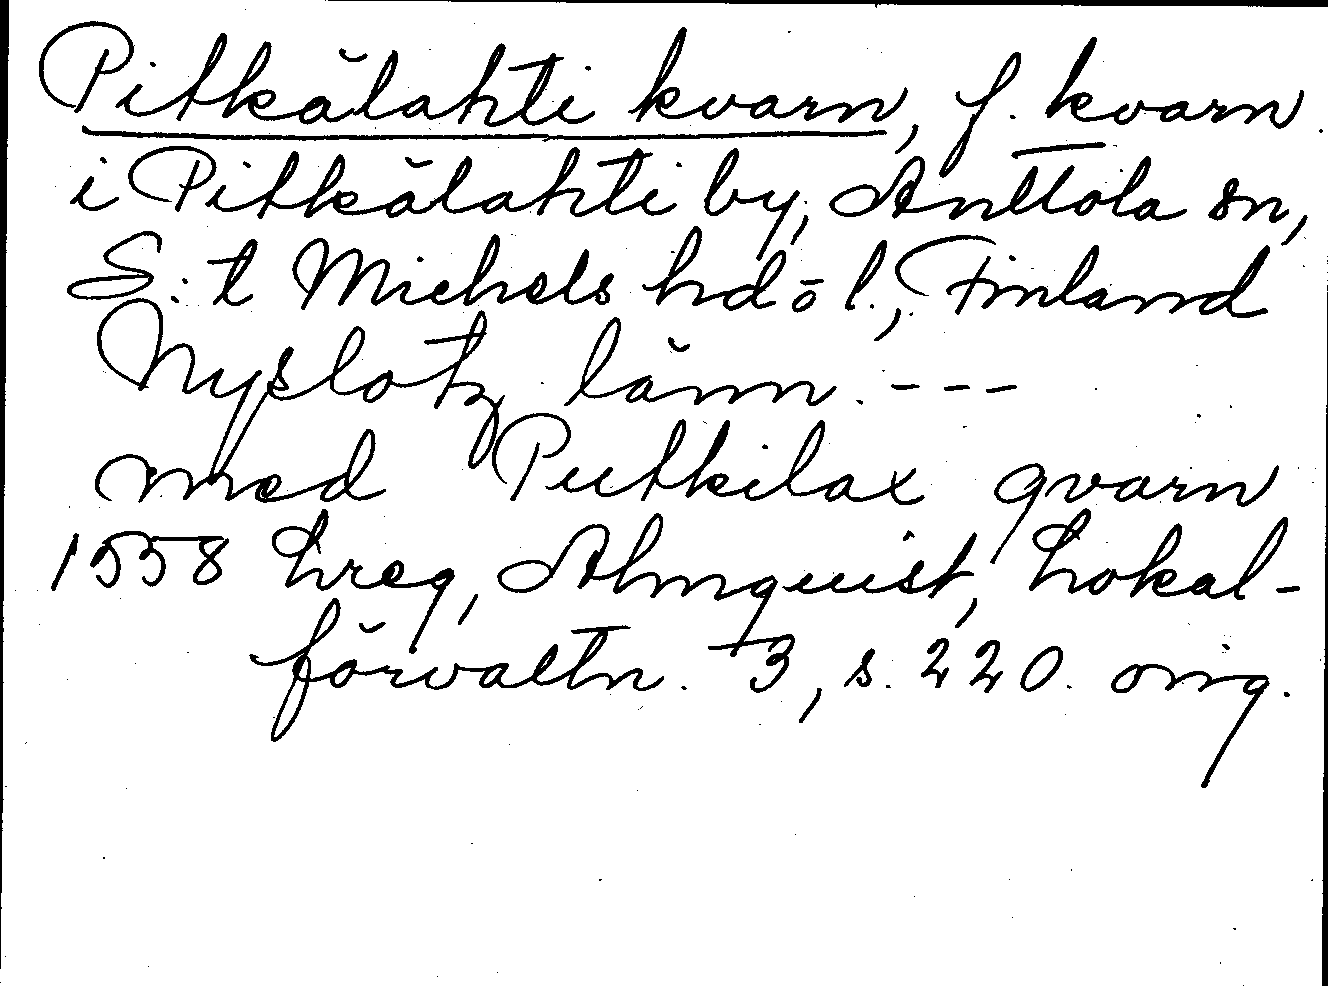 Pitkälahti kvarn, f. kvarn
i Pitkälahti by, Anttola sn,
S:t Michels hd o l., Finland
Nyslotz länn. ---
med Putkilax qvarn
1558 Lreg, Almquist, Lokal-
förvaltn. 3, s. 220. orig.